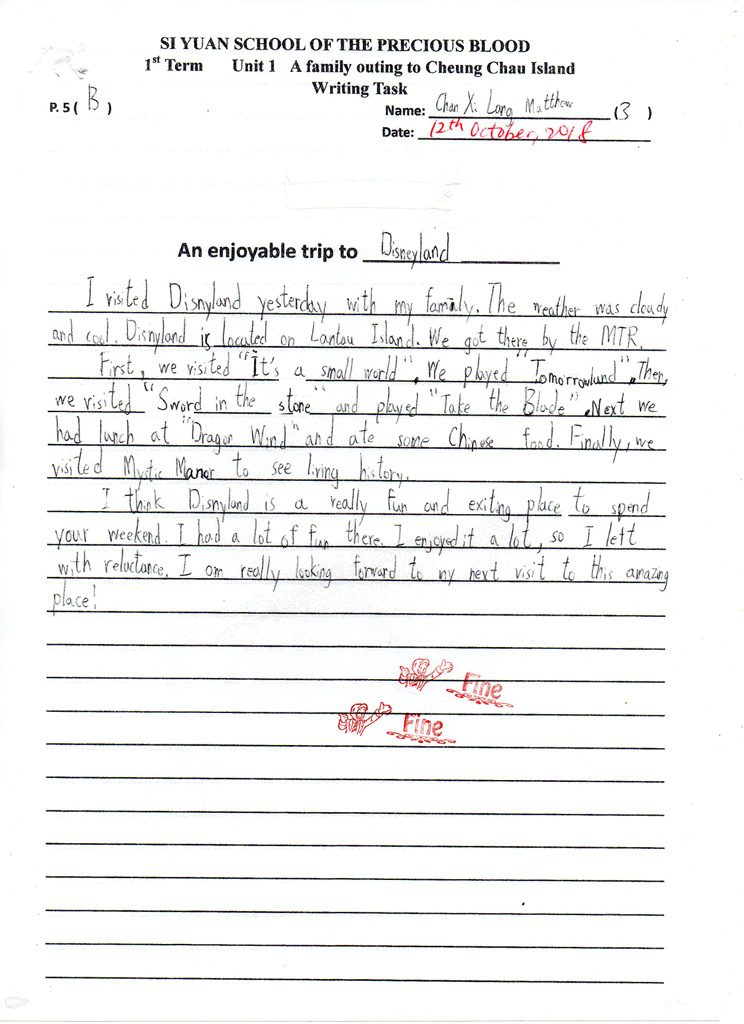 SI YUAN SCHOOL OF THE PRECIOUS BLOOD
1st Term Unit 1 A family outing to Cheung Chau Island
Writing Task
P. 5 ( B )
Name: Chan Xi Lang Matthew (3 )
Date: 12th October, 2018
An enjoyable trip to Disneyland
I visited Disnyland yesterday with my family. The weather was cloudy
and cool. Disnyland is located on Lantau Island. We got there by the MTR.
First, we visited "It's a small world". We played "Tomorrowland". Then,
we visited "Sword in the stone" and played "Take the Blade". Next we
had lunch at "Dragon Wind" and ate some Chinese food. Finally, we
visited Mystic Manor to see living history.
I think Disnyland is a really fun and exiting place to spend
your weekend. I had a lot of fun there. I enjoyed it a lot, so I left
with reluctance. I am really looking forward to my next visit to this amazing
place!
Fine
Fine